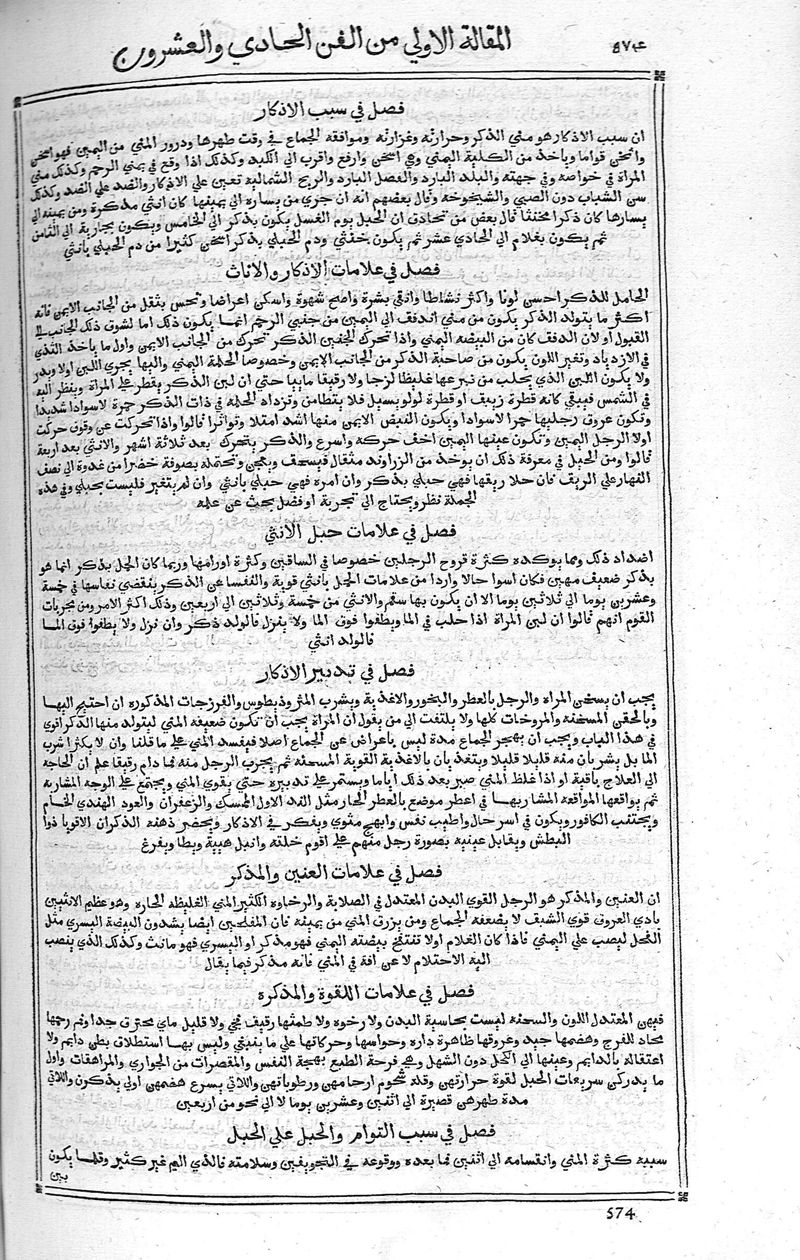 المقالة الاولي من الفن الحادي والعشرون
٥٧٤
فصل في سبب الاذكار
ان سبب الاذكار هو مني الذكر وحرارته وغزارته وموافقه الجماع في وقت طهرها ودرور المني من اليمين فهو اسخن
واثخن قواما وياخذ من الكلية اليمني وهي اسخن وارفع واقرب الي الكبد وكذلك اذا وقع في يمني الرحم وكذلك مني
المراة في خواصه وفي جهته والبلد البارد والفصل البارد والريح الشماليه تعين علي الاذكار والضد علي الضد وكذلك
سن الشباب دون الصبي والشيخوخه وقال بعضهم انه ان جري من يساره الي يمينها كان انثي مذكرة ومن يمينه الي
يسارها كان ذكرا مخنثا قال بعض من تحاذق ان الحبل يوم الغسل يكون بذكر الي الخامس ويكون بجارية الي الثامن
ثم يكون بغلام الي الحادي عشر ثم يكون خنثي ودم الحبلي بذكر اسخن كثيرا من دم الحبلي بانثي
فصل في علامات الاذكار والاناث
الحامل للذكر احسن لونا واكثر نشاطا وانقي بشرة واصح شهوة واسكن اعراضا وتحس بثقل من الجانب الايمن فانه
اكثر ما يتولد الذكر يكون من مني اندفق الي اليمين من جنبي الرحم انما يكون ذلك اما لشوق ذلك الجانب الي
القبول او لان الدفق كان من البيضه اليمني واذا تحرك الجنين الذكر تحرك من الجانب الايمن واول ما ياخذ الثدي
في الازدياد وتغير اللون يكون من صاحبة الذكر من الجانب الايمن وخصوصا الحلمة اليمني واليها يجري اللبن اولا ويدر
ولا يكون اللبن الذي يحلب من ثديها غليظا لزجا ولا رقيقا ماييا حتي ان لبن الذكر يقطر علي المراة وينظر اليه
في الشمس فيبقي كانه قطرة زيبق او قطرة لولو يسيل فلا يتطامن وتزداد الحلمة في ذات الذكر حمرة لا سوادا شديدا
وتكون عروق رجليها حمرا لا سوادا ويكون النبض الايمن منها اشد امتلا وتواترا قالوا واذا تحركت عن وقوف حركت
اولا الرجل اليمين وتكون عينها اليمين اخف حركه واسرع والذكر يتحرك بعد ثلاثة اشهر والانثي بعد اربعة
قالوا ومن الحبل في معرفة ذلك ان يوخذ من الزراوند مثقال فيسحق ويعجن وتحتمله بصوفة خضرا من غدوة الي نصف
النهار علي الريق فان حلا ريقها فهي حبلي بذكر وان امره فهي حبلي بانثي وان لم يتغير فليست بحبلي وفي هذه
الجملة نظر ويحتاج الي تجربة او فضل بحث عن علمه
فصل في علامات حبل الانثي
اضداد ذلك ومما يوكده كثرة قروح الرجلين خصوصا في الساقين وكثرة اورامها وربما كان الحمل بذكر انما هو
بذكر ضعيف مهين فكان اسوا حالا واردا من علامات الحمل بانثي قوية والنفسا عن الذكر ينقضي نفاسها في خمسة
وعشرين يوما الي ثلاثين يوما الا ان يكون بها سقم والانثي من خمسة وثلاثين الي اربعين وذلك اكثر الامر ومن مجربات
القوم انهم قالوا ان لبن المراة اذا حلب في الما ويطفوا فوق الما ولا ينزل فالولد ذكر وان نزل ولا يطفوا فوق المـا
فالولد انثي
فصل في تدبير الاذكار
يجب ان يسخن المراه والرجل بالعطر والبخور والاغذية وبشرب المثروذيطوس والفرزجات المذكوره ان احتيج اليهـا
وبالحقن المسخنه والمروخات كلها ولا يلتفت الي من يقول ان المراة يجب ان تكون ضعيفه المني ليتولد منها الذكر اقوي
في هذا الباب ويجب ان يهجر الجماع مدة ليس باعراض عن الجماع اصلا فيفسد المني علي ما قلنا وان لا يكثرا شرب
الما بل يشربان منه قليلا قليلا ويتغذيان بالاغذية القوية المسخنه ثم يجرب الرجل منه فما دام رقيقا علم ان الحاجه
الي العلاج باقية او اذا غلظ المني صبر بعد ذلك اياما ويستمر علي تدبيره حتي يقوي المني ويجتمع علي الوجه المشار به
ثم يواقعها المواقعه المشار بهـا في اعطر موضع بالعطر الحار مثل الند الاول المسك والزعفران والعود الهندي الخام
ويجتنب الكافور ويكون في اسر حال واطيب نفس وابهج مثوي ويفكر في الاذكار ويحضر ذهنه الذكران الاقويا ذوا
البطش ويقابل عينيه بصورة رجل منهم علي اقوم خلقه وانبل هيية ويطا ويفرغ
فصل في علامات العنين والمذكر
ان العنين والمذكر هو الرجل القوي البدن المعتدل في الصلابة والرخاوه الكثير المني الغليظه الحاره وهو عظيم الانثيين
بادي العروق قوي الشبق لا يضعفه الجماع ومن يزرق المني من يمينه فان الملقحين ايضا يشدون البيضة اليسري مثل
الفحل ليصب علي اليمني فاذا كان الغلام اولا تنتفخ بيضته اليمني فهو مذكر او اليسري فهو مانث وكذلك الذي ينصب
اليه الاحتلام لا عن افة في المني فانه مذكر فيما يقال
فصل في علامات اللقوة والمذكرة
فيهن المعتدل اللون والسحنه ليست بجاسية البدن ولا رخوه ولا طمثها رقيق قيحي ولا قليل ماي محترق جدا وفم رحمها
محاد للفرج وهضمها جيد وعروقها ظاهرة داره وحواسها وحركاتها علي ما ينبغي وليس بهـا استطلاق بطن دايم ولا
اعتقاله بالدايم وعينها الي الكحل دون الشهل وهي فرحة الطبع بهجة النفس والمقصرات من الجواري والمراهقات واول
ما يدركن سريعات الحبل لقوة حرارتهن وقلة شحوم ارحامهن ورطوباتهن واللاتي يسرع هضمهن اولي يذكرون واللاتي
مدة طهرهن قصيرة الي اثنين وعشرين يوما لا الي نحو من اربعين
فصل في سبب التوام والحبل علي الحبل
سببه كثرة المني وانقسامه الي اثنين فما بعده ووقوعه في التجويفين وسلامته فالذي اليهم غير كثير وقلما يكون
بين
574